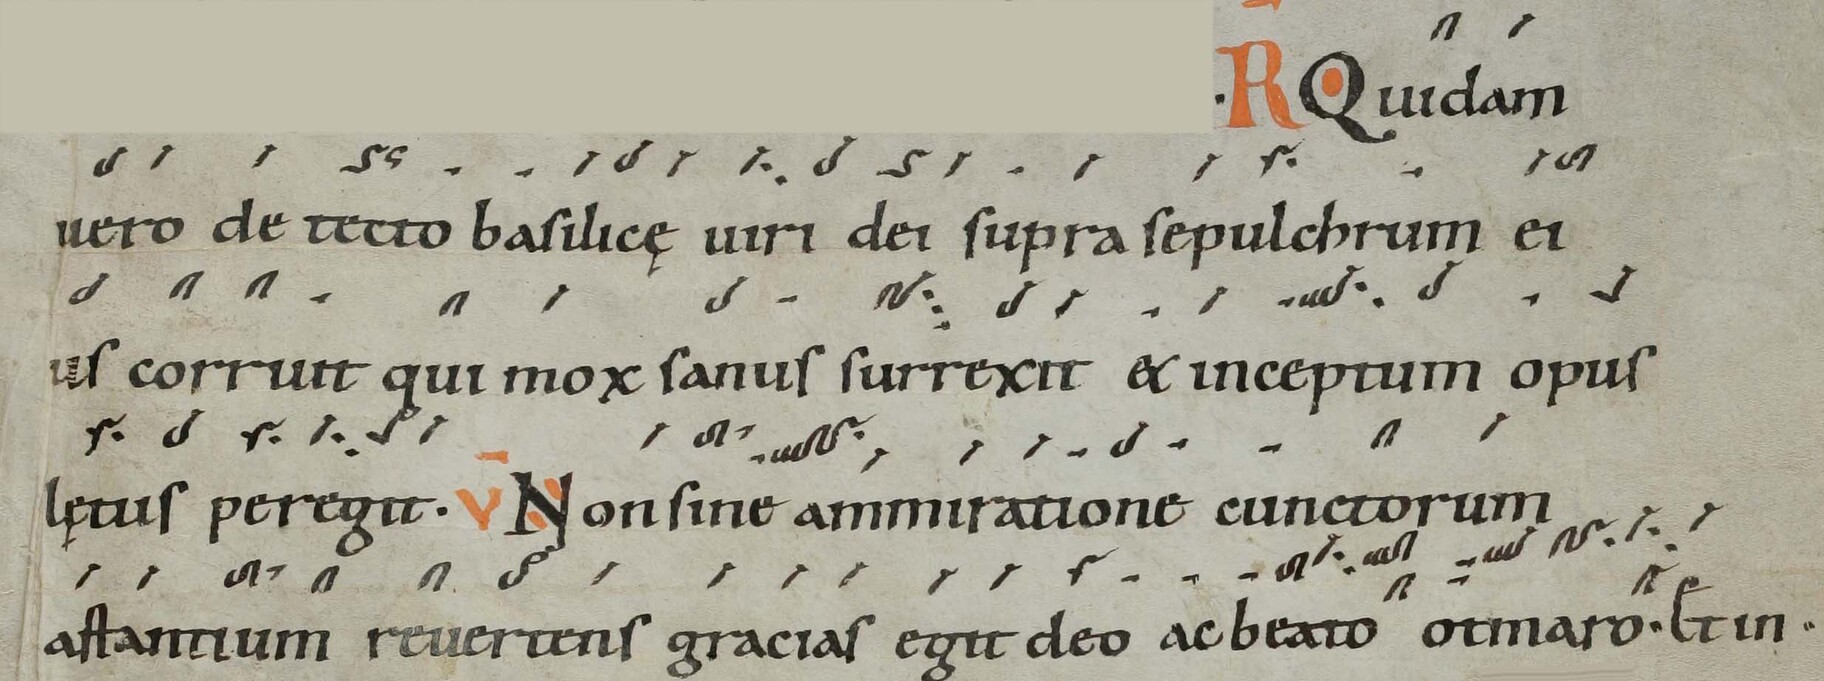 ·R Quidam
uero de tecto basilicę uiri dei supra sepulchrum ei
us corruit qui mox sanus surrexit & inceptum opus
lętus peregit. V Non sine ammiratione cunctorum
astantium reuertens gracias egit deo ac beato otmaro. Et in.